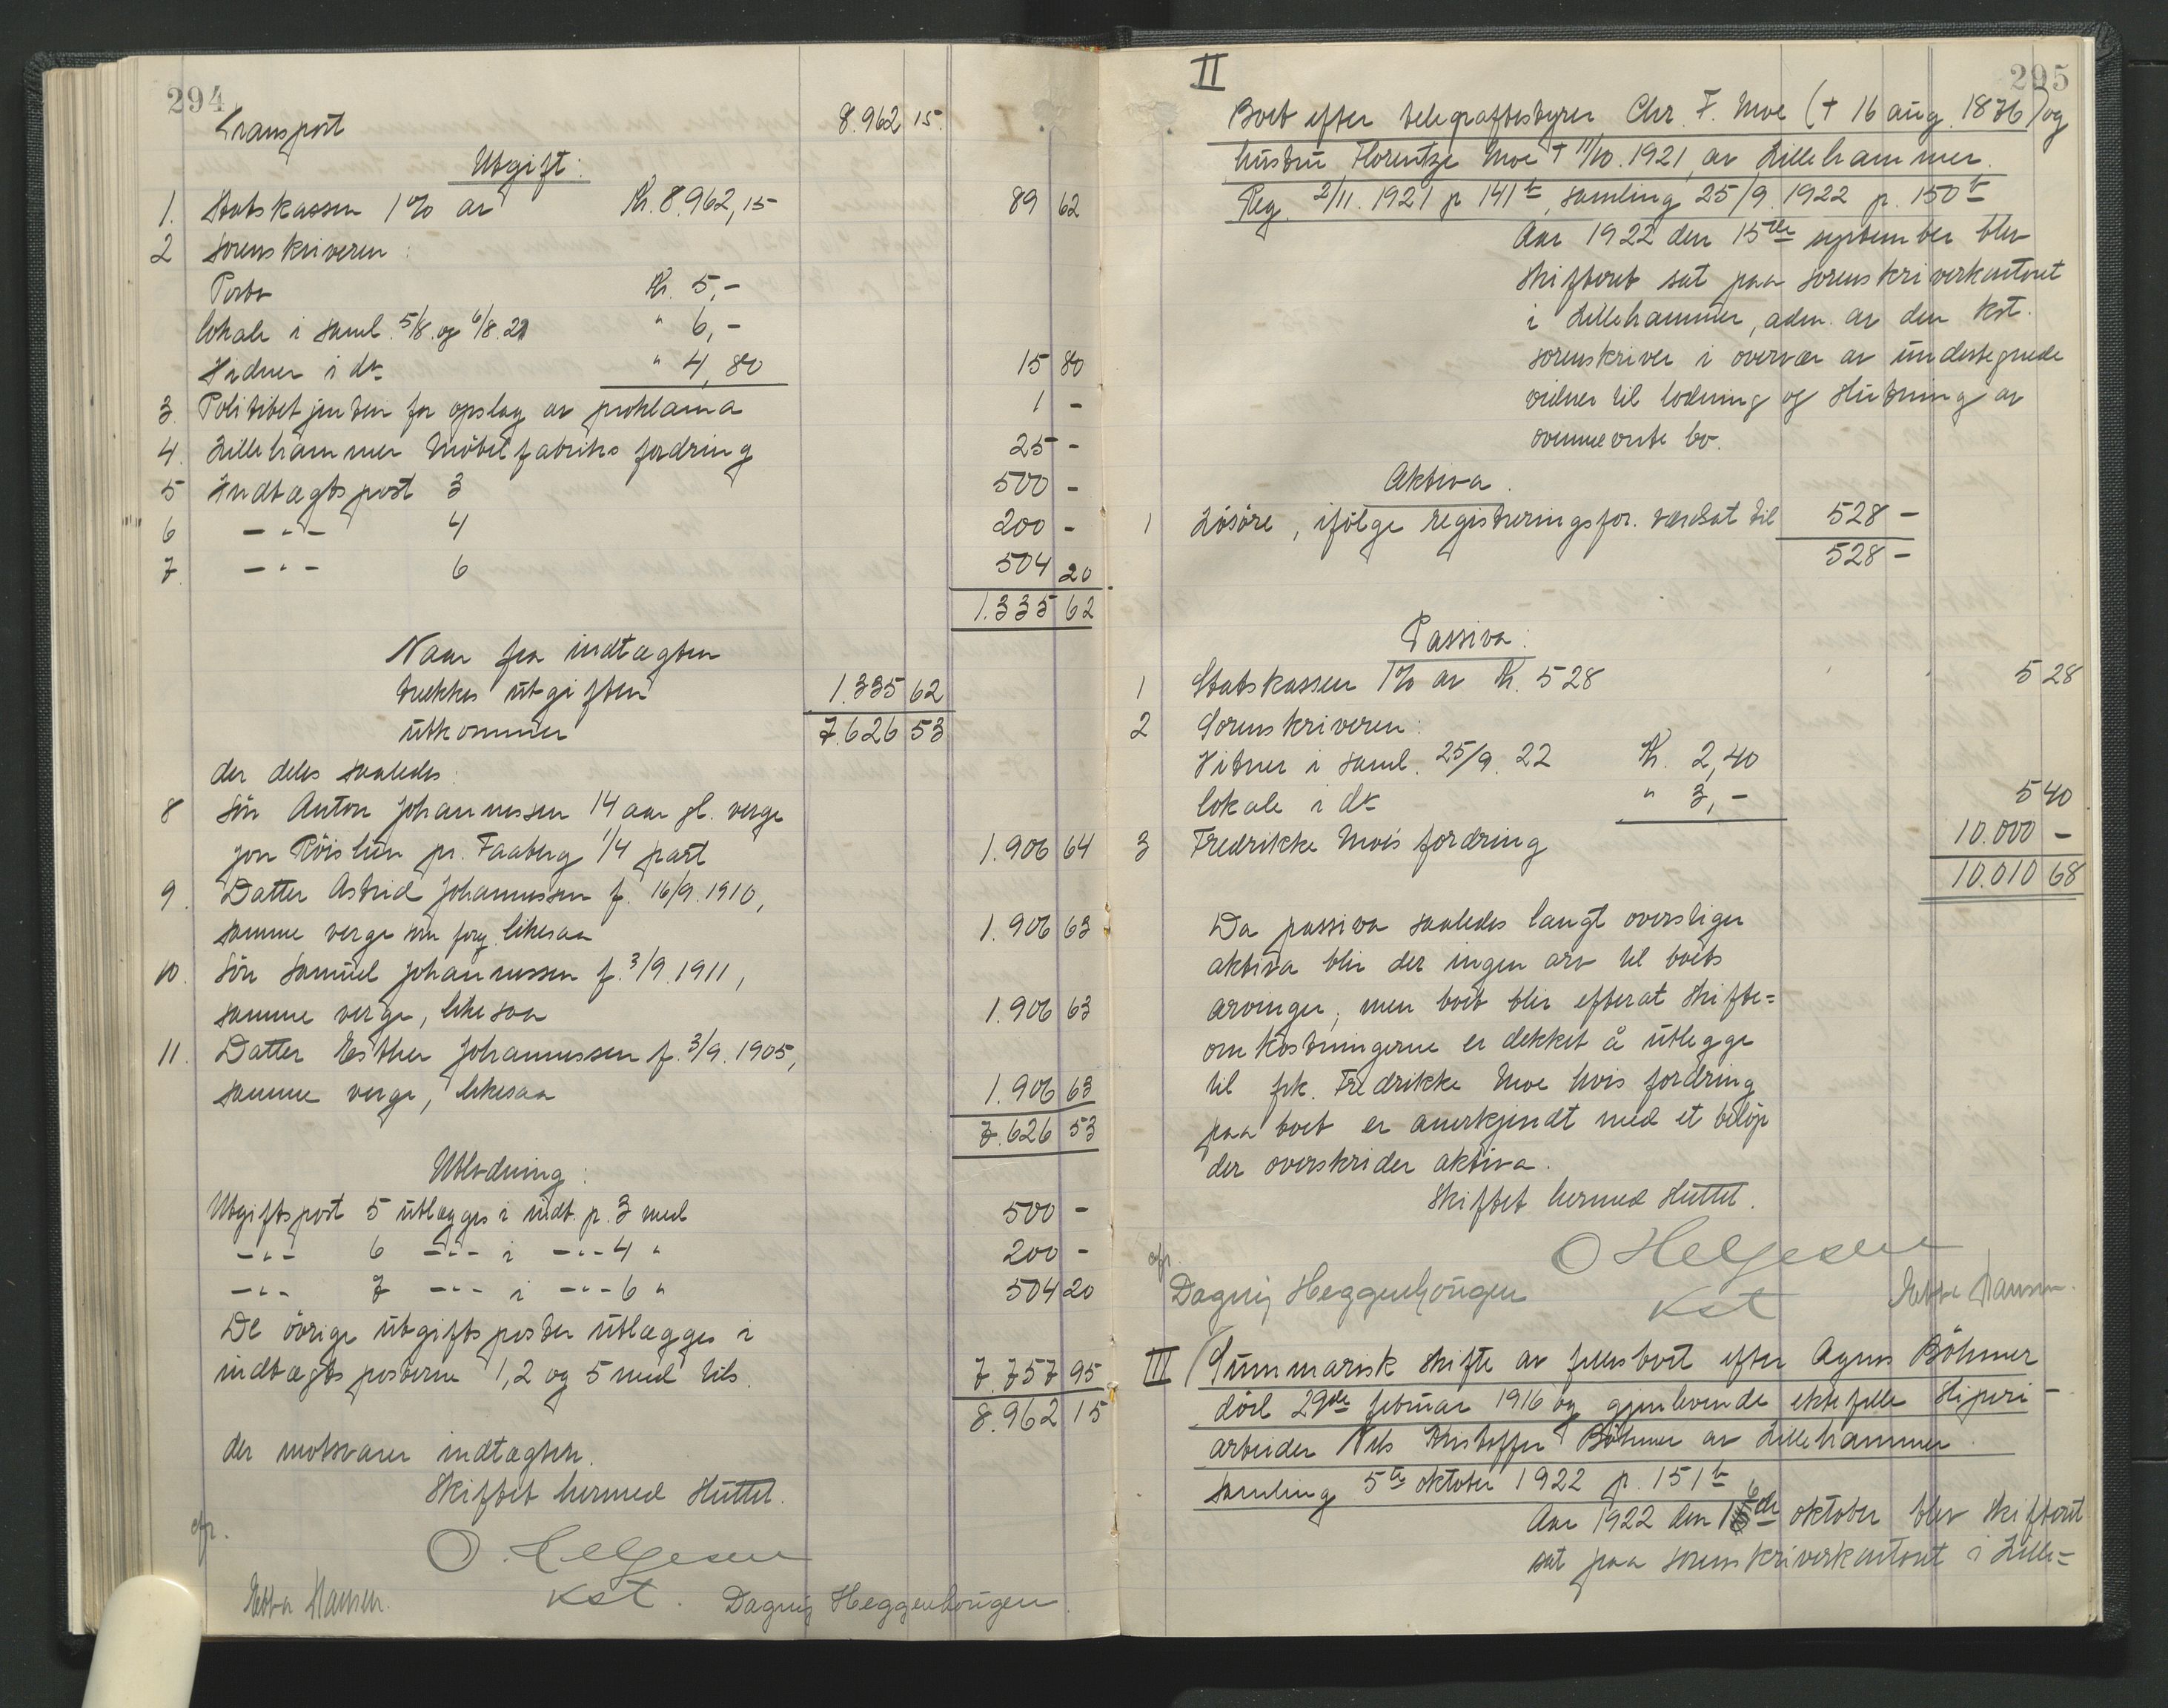 294
Transport 8.962 15.
Utgift:
1. Statskassen 1% av Kr. 8.962,15 89 62
2 Sorenskriveren:
Porto Kr. 5,-
lokale i saml. 5/8. og 6/8. 21 " 6,-
Vidner i do " 4,80 15 80
3. Politibetjenten for opslag av proklama 1 -
4. Lillehammer Möbelfabriks fordring 25 -
5 Indtægtspost 3 500 -
6 -"- 4 200 -
7. -"- 6 504 20
1.335 62
Naar fra indtægten
trekkes utgiften 1.335 62
utkommer 7.626 53
der deles saaledes:
8 Sön Anton Johannessen 14 aar gl. verge
Jon Röislien pr. Faaberg 1/4 part 1.906 64
9. Datter Astrid Johannessen f. 16/9. 1910,
samme verge som forg. likesaa 1.906 63
10. Sön Samuel Johannessen f. 3/9. 1911,
samme verge, likesaa 1.906 63
11. Datter Esther Johannessen f. 3/9. 1905,
samme verge, likesaa 1.906 63
7.626 53
Utlodning:
Utgiftspost 5 utlægges i indt. p. 3 med 500 -
-"- 6 -"- i -"- 4 " 200 -
-"- 7 -"- i -"- 6 " 504 20
De övrige utgiftsposter utlægges i
indtægtsposterne 1, 2 og 5 med tils. 7.757 95
8.962 15
der motsvarer indtægten.
Skiftet hermed sluttet.
O. Helgesen
kst.
Ebba Hansen. Dagny Heggenhougen.
295
II
Boet efter telegrafbestyrer Chr. F. Moe († 16 aug. 1876) og
hustru Florentze Moe † 11/10. 1921, av Lillehammer.
Reg. 2/11. 1921 p 141b, samling 25/9. 1922 p. 150b
Aar 1922 den 15de september blev
skifteret sat paa sorenskriverkontoret
i Lillehammer, adm. av den kst.
sorenskriver i overvær av undertegnede
vidner til lodning og slutning av
ovennevnte bo.
Aktiva.
1 Lösöre, ifölge registreringsfor. værdsat til 528 -
528 -
Passiva:
1 Statskassen 1% av Kr. 528 5 28
2 Sorenskriveren:
Vidner i saml. 25/9. 22 Kr. 2,40
lokale i do " 3,- 5 40
3 Fredrikke Moes fordring 10.000 -
10.010 68
Da passiva saaledes langt overstiger
aktiva blir der ingen arv til boets
arvinger, men boet blir efterat skifte=
omkostningerne er dekket å utlegge
til frk. Fredrikke Moe hvis fordring
paa boet er anerkjendt med et belöp
der overskrider aktiva.
Skiftet hermed sluttet.
O Helgesen
Dagny Heggenhougen kst Ebba Hansen.
III Summarisk skifte av fellesboet efter Agnes Böhmer
död 29de februar 1916 og gjenlevende ektefelle sliperi-
arbeider Nils Kristoffer Böhmer av Lillehammer
samling 5te oktober 1922 p. 151b
Aar 1922 den 16de oktober blev skifteret
sat paa sorenskriverkontoret i Lille=